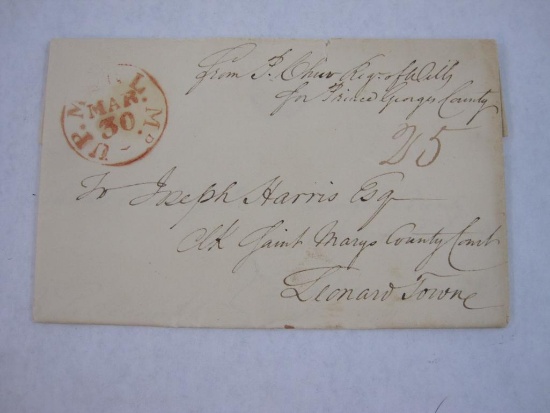 from P. Chew Regr of Wills
for Prince Georges County
MAR.
30
M.
25
To Joseph Harris Esq
Clk Saint Marys County Court
Leonard Towne